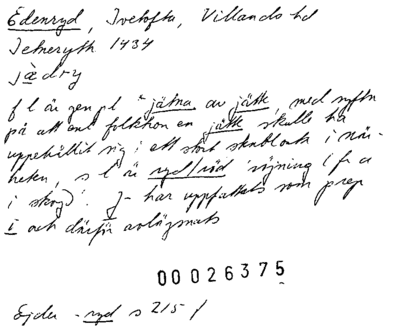 Edenryd, Ivetofta, Villands hd
Jetneryth 1434
jædry
f l är gen pl *jätna av jätte, med syftn
på att enl folktron en jätte skulle ha
uppehållit sig i ett stort stenblock i när-
heten, s l är ryd/röd 'röjning (fi a
i skog)'. J- har uppfattats som prep
i och därför avlägsnats
00026375
Ejder -ryd s 215 f